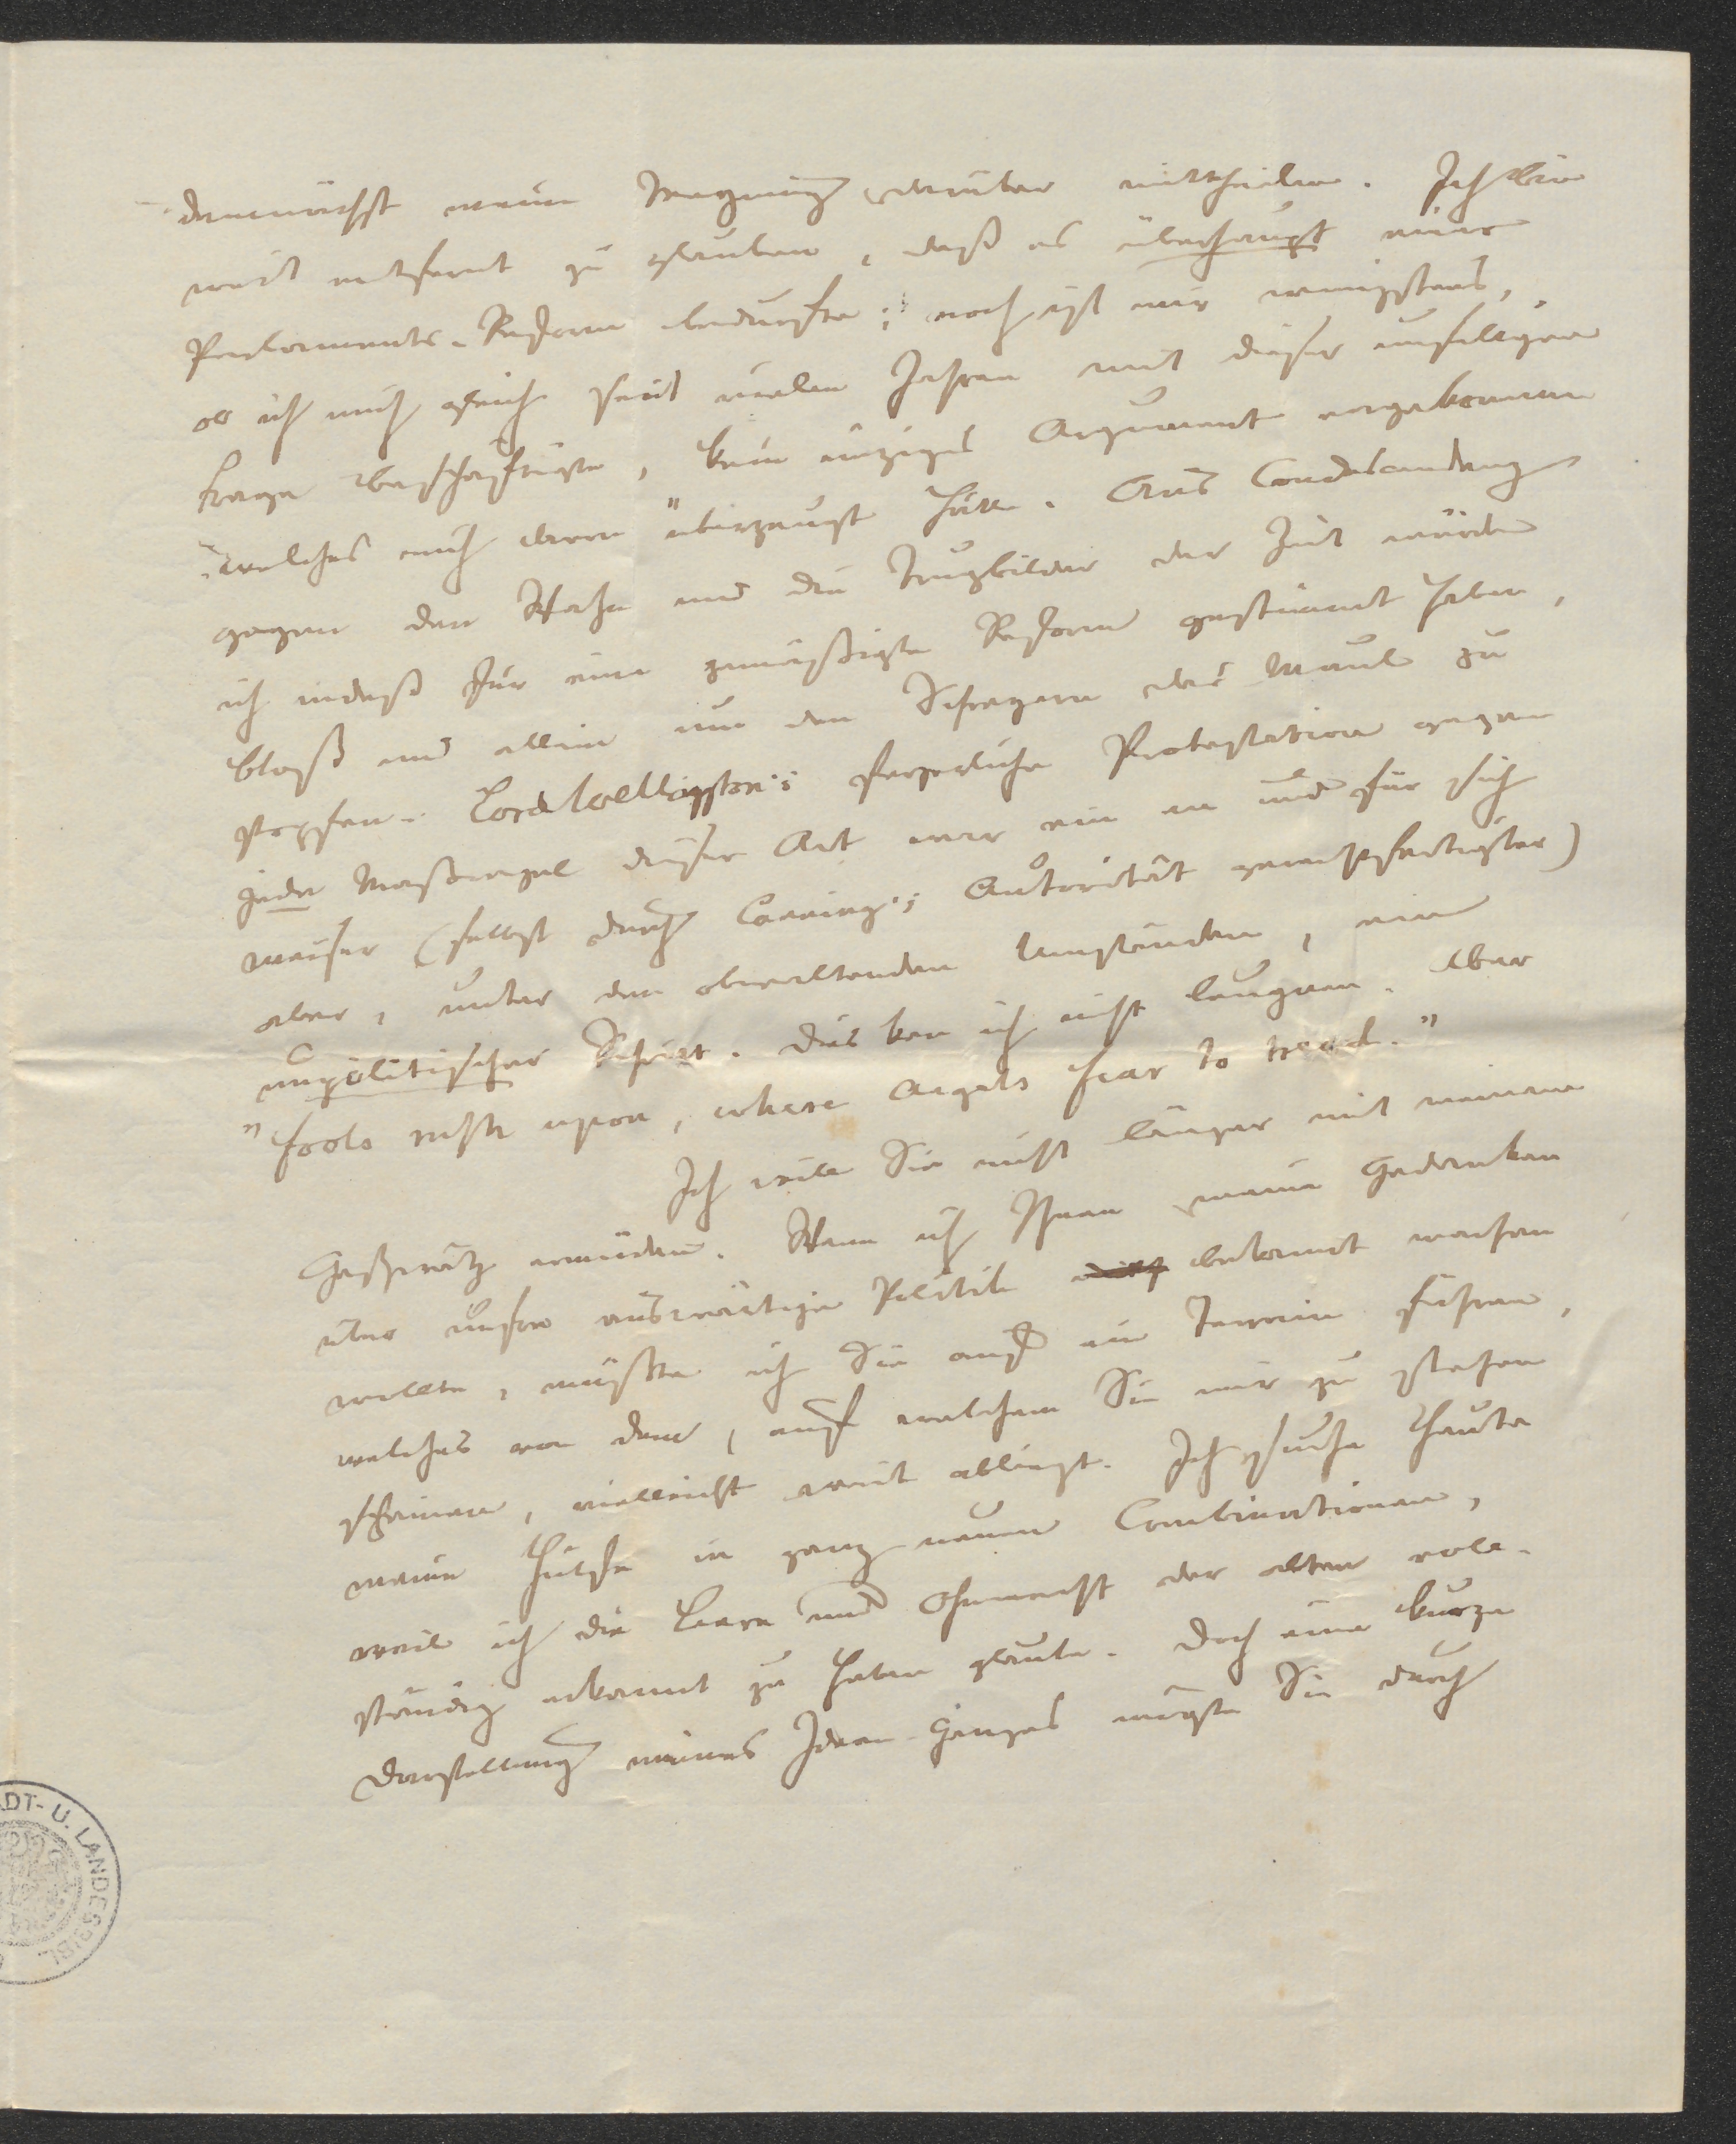 demnächst meine Meynung darüber mittheilen. Ich bin
weit entfernt zu glauben, daß es überhaupt einer
Parlaments-Reform bedurfte; noch ist mir wenigstens,
ob ich mich gleich seit vielen Jahren mit dieser unseligen
Frage beschäftigte, kein einziges Argument vorgekommen
welches mich davon überzeugt hätte. Aus Condescendenz
gegen den Wahn und die Trugbilder der Zeit würde
ich indeß für eine gemäßigte Reform gestimmt haben,
bloß und allein um den Schreyern das Maul zu
stopfen. Lord Wellington's feyerliche Protestation gegen
jede Maßregel dieser Art war ein an und für sich
weiser (selbst durch Canning's Autorität gerechtfertigter)
aber, unter den obwaltenden Umständen, ein
unpolitischer Schritt. Dies kan ich nicht leugnen. Aber
"fools rush upon, where Angels fear to tread."
Ich will Sie nicht länger mit meinem
Geschwätz ermüden. Wenn ich Ihnen meine Gedanken
über unsre auswärtige Politik bekannt machen
wollte, müßte ich Sie auf ein Terrain führen,
welches von dem, auf welchem Sie mir zu stehen
scheinen, vielleicht weit abliegt. Ich suche heute
meine Hülfe in ganz neuen Combinationen,
weil ich die Leere und Ohnmacht der alten voll-
ständig erkannt zu haben glaube. Doch eine kurze
Darstellung meines Ideen-Ganges mögte Sie durch
ADT- U. LANDESBIBL